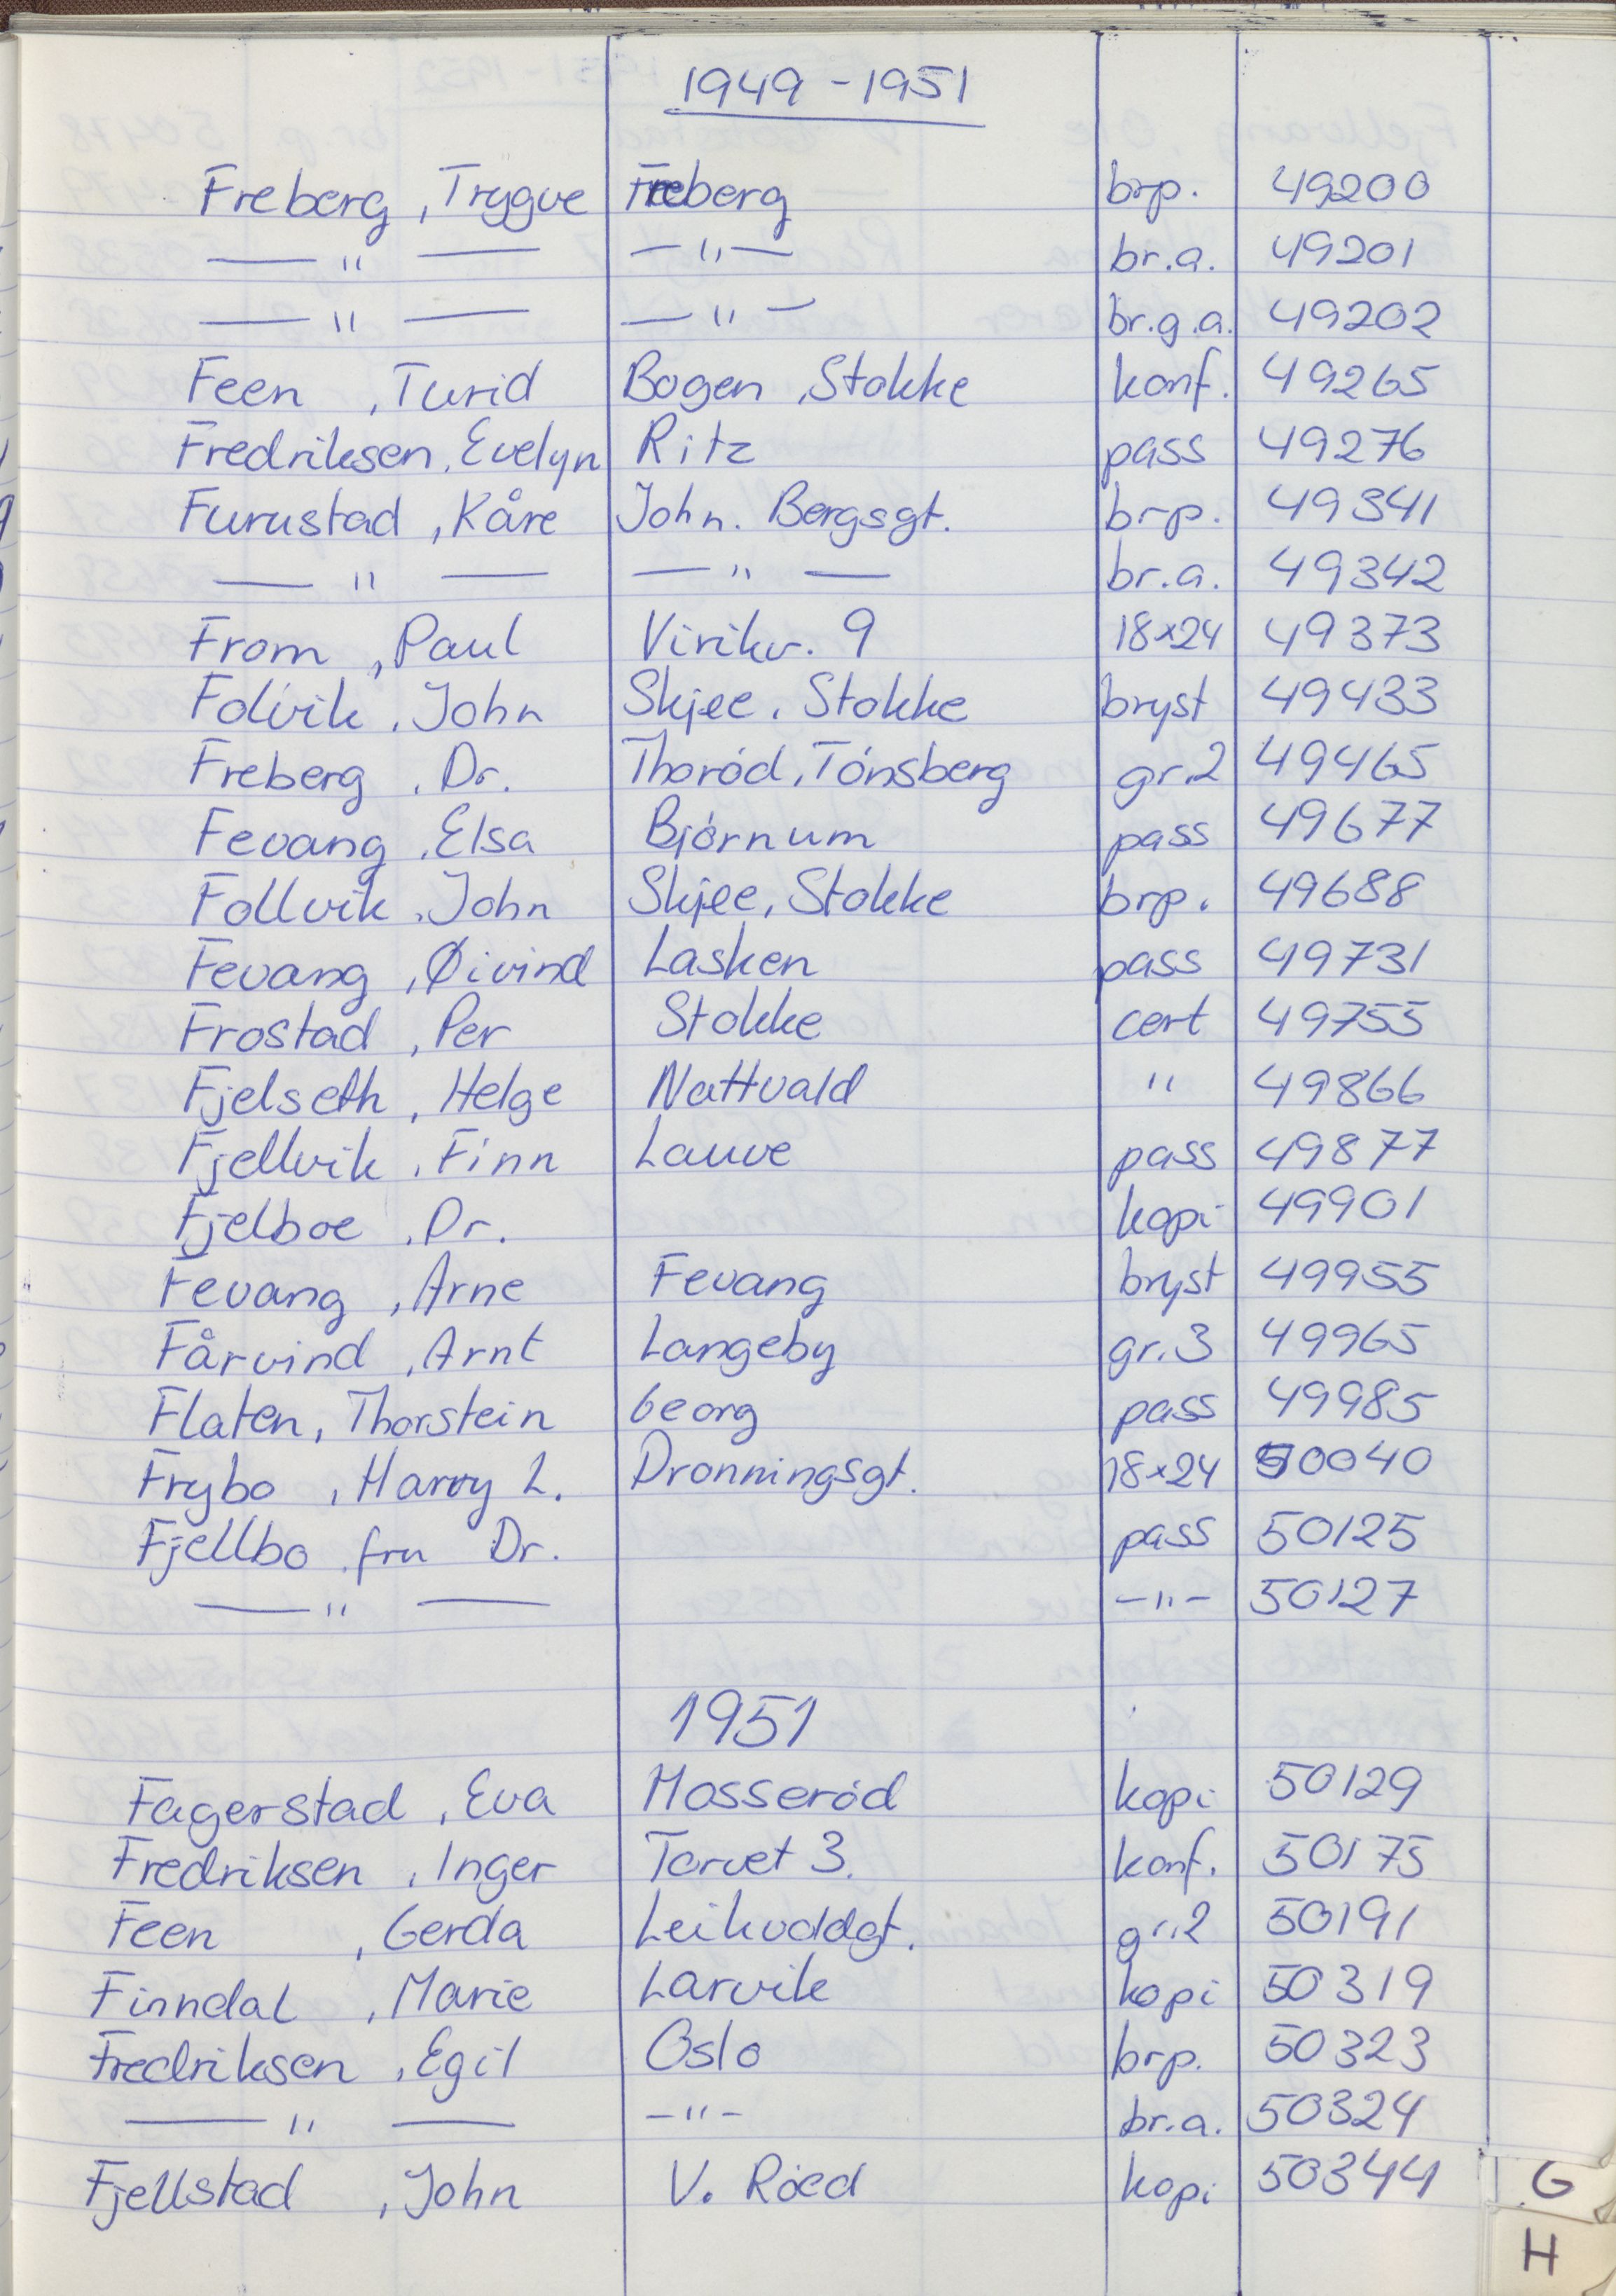 1949 - 1951
Freberg, Trygve Freberg brp. 49200
— " — — " — br.a. 49201
— " — — " — br.g.a. 49202
Feen, Turid Bogen, Stokke konf. 49265
Fredriksen, Evelyn Ritz pass 49276
Furustad, Kåre John. Bergsgt. brp. 49341
— " — — " — br.a. 49342
From, Paul Virikv. 9 18×24 49373
Folvik, John Skjee, Stokke bryst 49433
Freberg, Dr. Thorød, Tønsberg gr.2 49465
Fevang, Elsa Bjørnum pass 49677
Follvik, John Skjee, Stokke brp. 49688
Fevang, Øivind Lasken pass 49731
Frostad, Per Stokke cert 49755
Fjelseth, Helge Nattvald " 49866
Fjellvik, Finn Lauve pass 49877
Fjelboe, Dr. kopi 49901
Fevang, Arne Fevang bryst 49955
Fårvind, Arnt Langeby gr.3 49965
Flaten, Thorstein Georg pass 49985
Frybo, Harry L. Dronningsgt. 18×24 50040
Fjellbo, fru Dr. pass 50125
— " — — " — 50127
1951
Fagerstad, Eva Mosserød kopi 50129
Fredriksen, Inger Torvet 3. konf. 50175
Feen, Gerda Leikvollgt. gr.2 50191
Finndal, Marie Larvik kopi 50319
Fredriksen, Egil Oslo brp. 50323
— " — — " — br.a. 50324
Fjellstad, John V. Røed kopi 50344
G
H